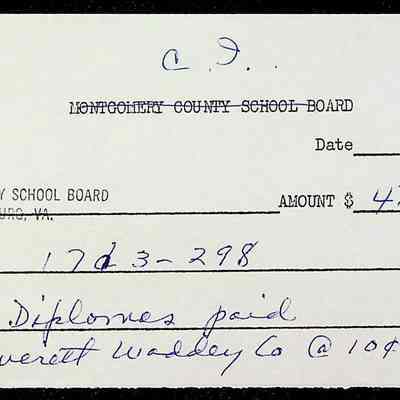 C I.
MONTGOMERY COUNTY SCHOOL BOARD
Date
Y SCHOOL BOARD
AMOUNT $ 4
BURG, VA.
17d3-298
Diplomas paid
verett Waddey Co @ 10¢